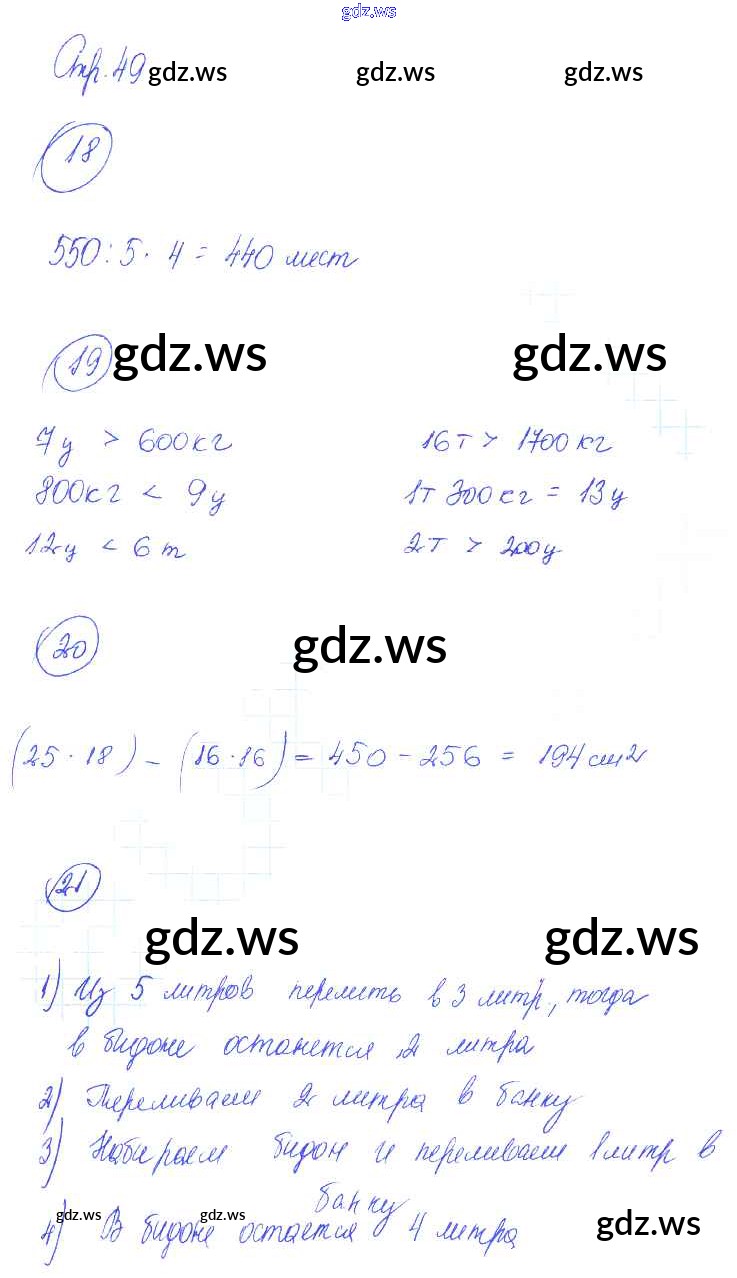 gdz.ws
Стр. 49 gdz.ws gdz.ws gdz.ws
18
550 : 5 · 4 = 440 мест
19 gdz.ws gdz.ws
7ц > 600кг 16т > 1700кг
800кг < 9ц 1т 300кг = 13ц
12ц < 6 т 2т > 200ц
20 gdz.ws
(25 · 18) - (16 · 16) = 450 - 256 = 194 см2
21
gdz.ws gdz.ws
1) Из 5 литров перелить в 3 литр., тогда
в бидоне останется 2 литра
2) Переливаем 2 литра в банку
3) Набираем бидон и переливаем 1 литр в
банку
4) В бидоне остается 4 литра
gdz.ws gdz.ws gdz.ws